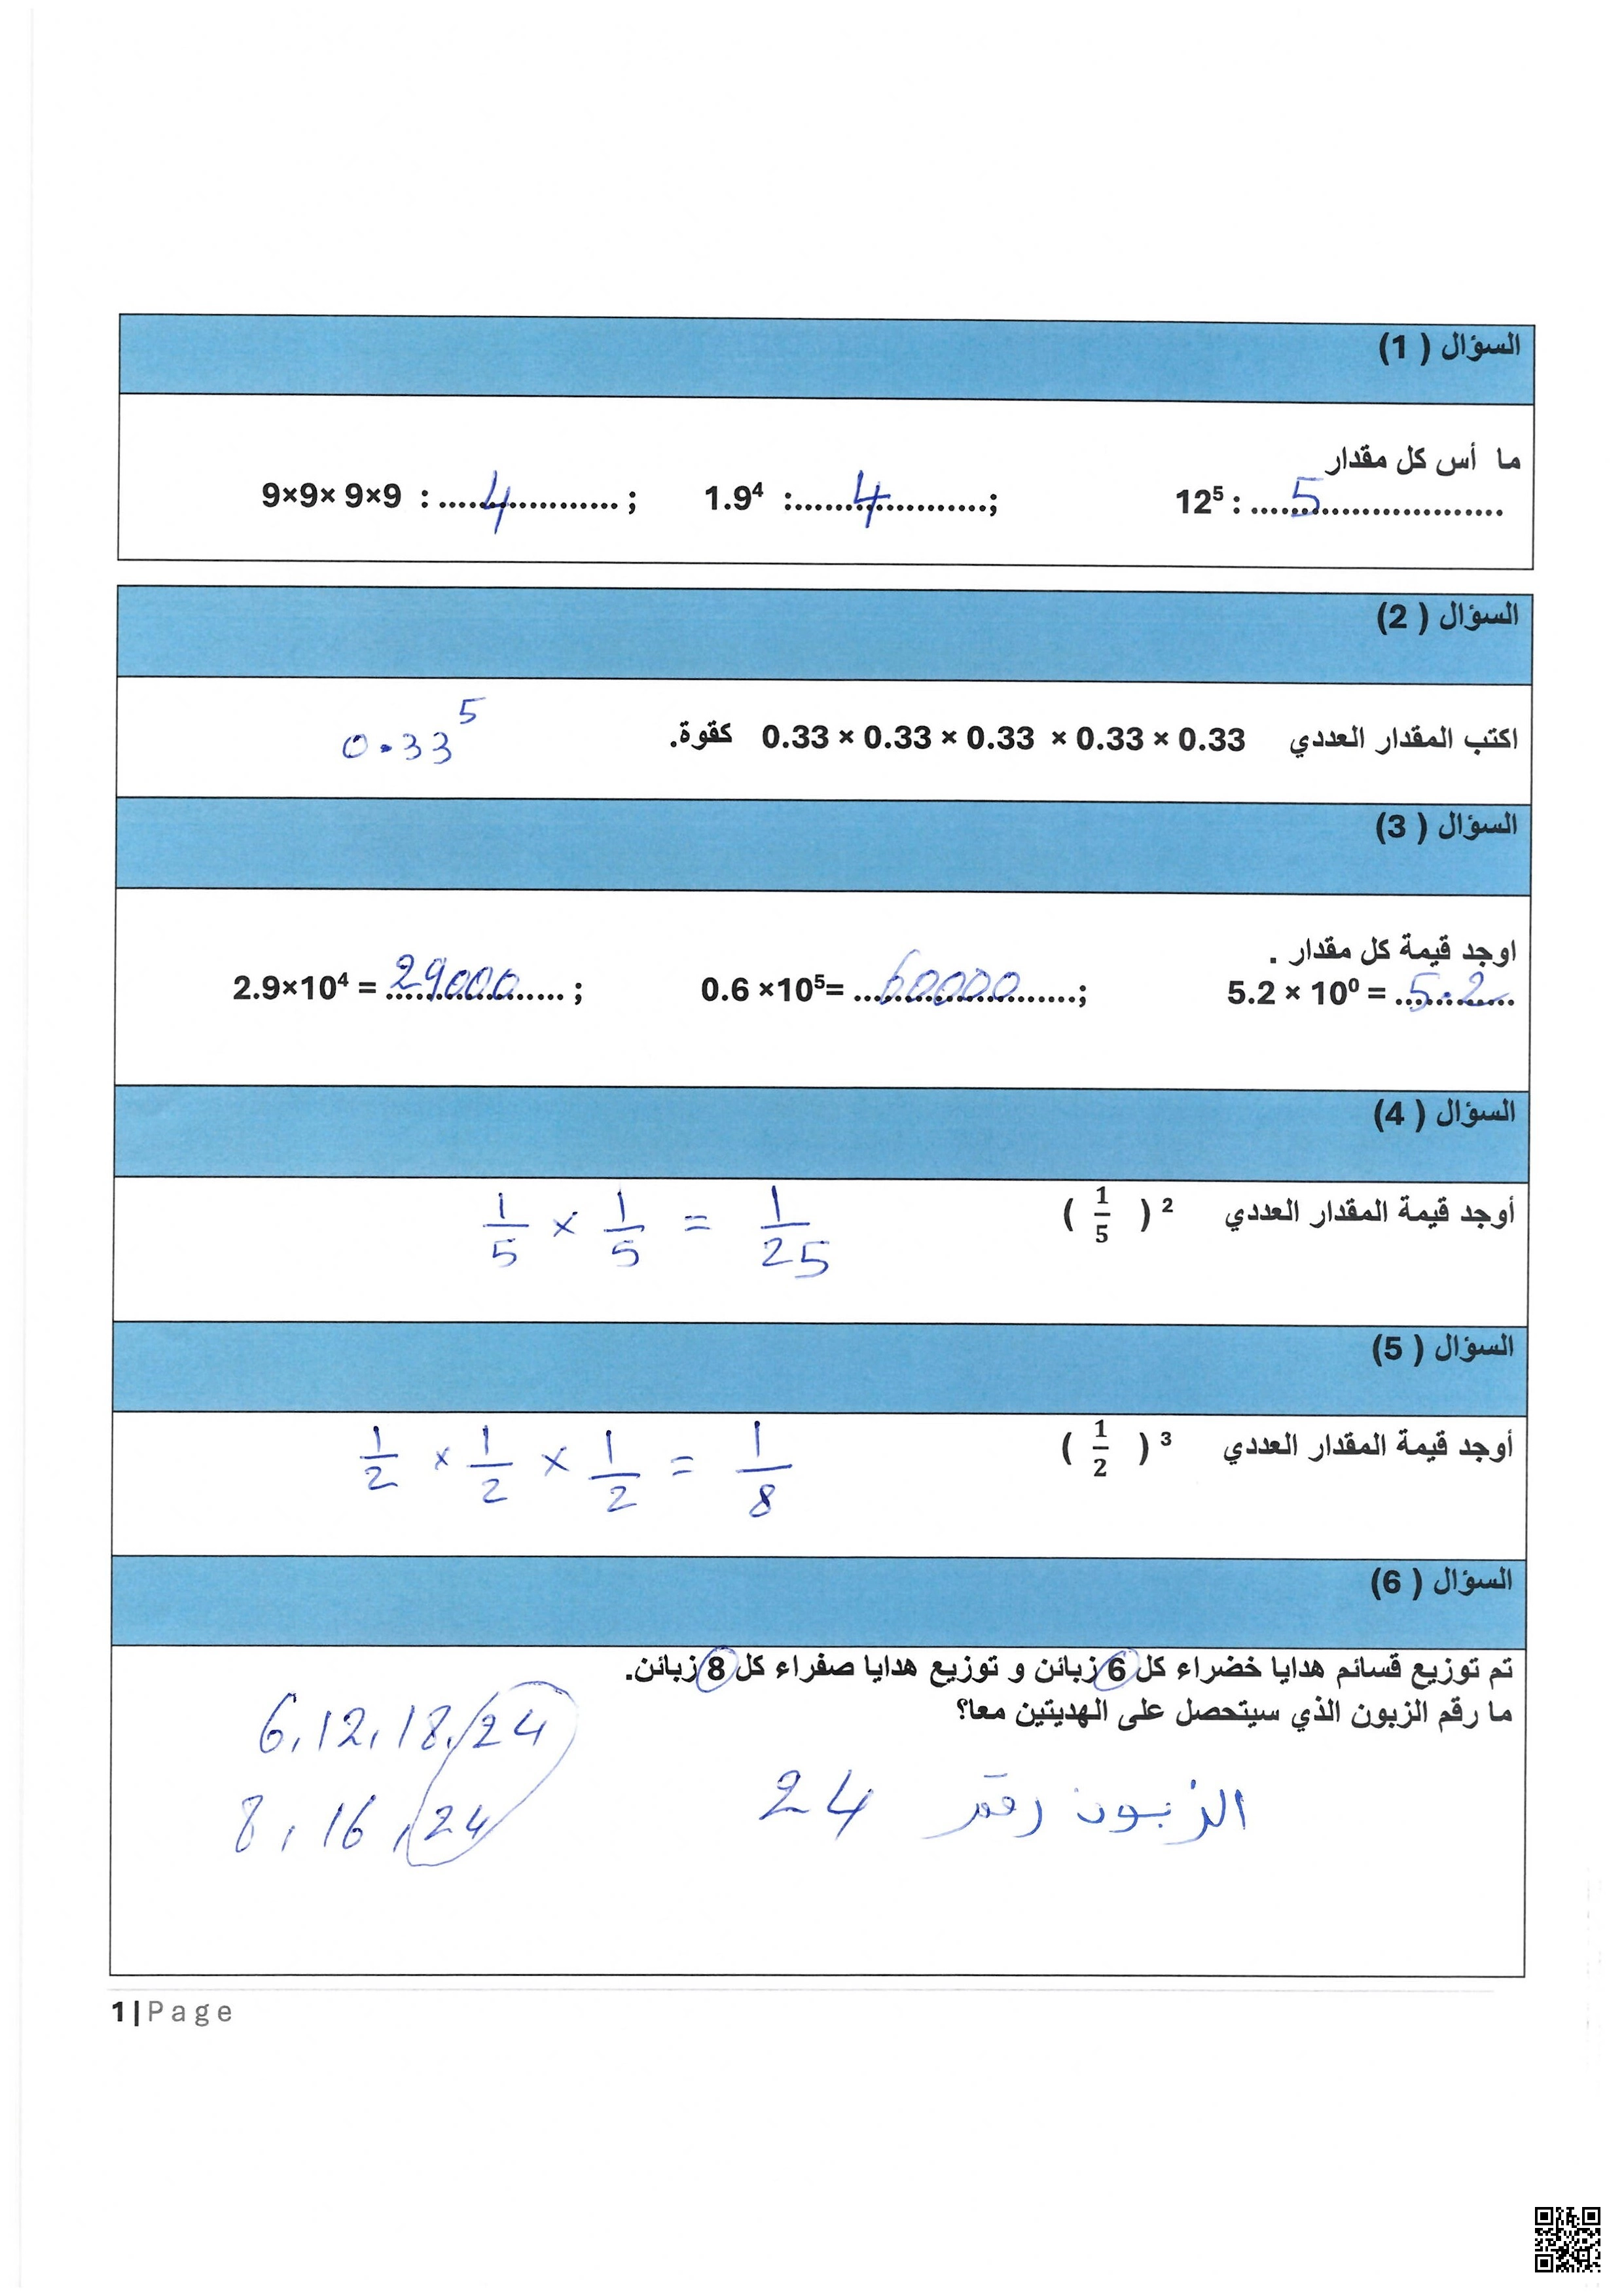 السؤال ( 1)
ما أس كل مقدار
9×9× 9×9 : ....4.... ; 1.9⁴ :....4....; 12⁵ : ....5....
السؤال ( 2)
اكتب المقدار العددي 0.33 × 0.33 × 0.33 × 0.33 × 0.33 كقوة. 0.33⁵
السؤال ( 3)
اوجد قيمة كل مقدار .
2.9×10⁴ = 29000 ; 0.6 ×10⁵= 60000 ; 5.2 × 10⁰ = 5.2
السؤال ( 4)
أوجد قيمة المقدار العددي ( 1/5 ) ² 1/5 × 1/5 = 1/25
السؤال ( 5)
أوجد قيمة المقدار العددي ( 1/2 ) ³ 1/2 × 1/2 × 1/2 = 1/8
السؤال ( 6)
تم توزيع قسائم هدايا خضراء كل 6 زبائن و توزيع هدايا صفراء كل 8 زبائن.
ما رقم الزبون الذي سيتحصل على الهديتين معا؟
6, 12, 18, 24
8, 16, 24
الزبون رقم 24
1 | Page